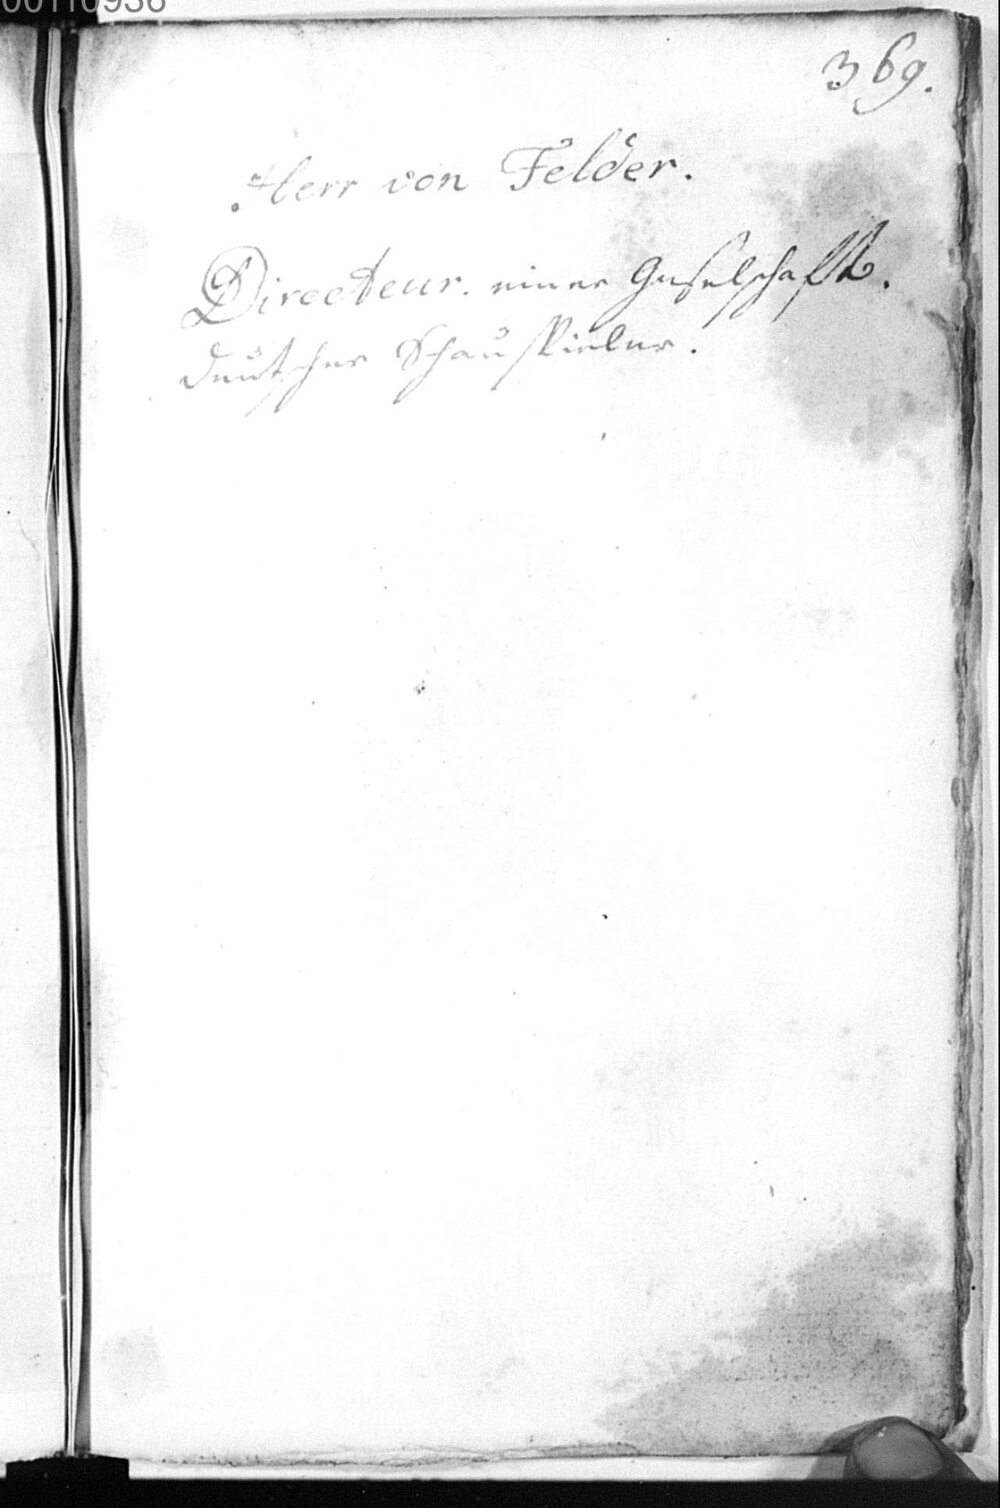 00110936
369.
Herr von Felder.
Directeur. einer Geselschafft.
deutscher Schauspieler.